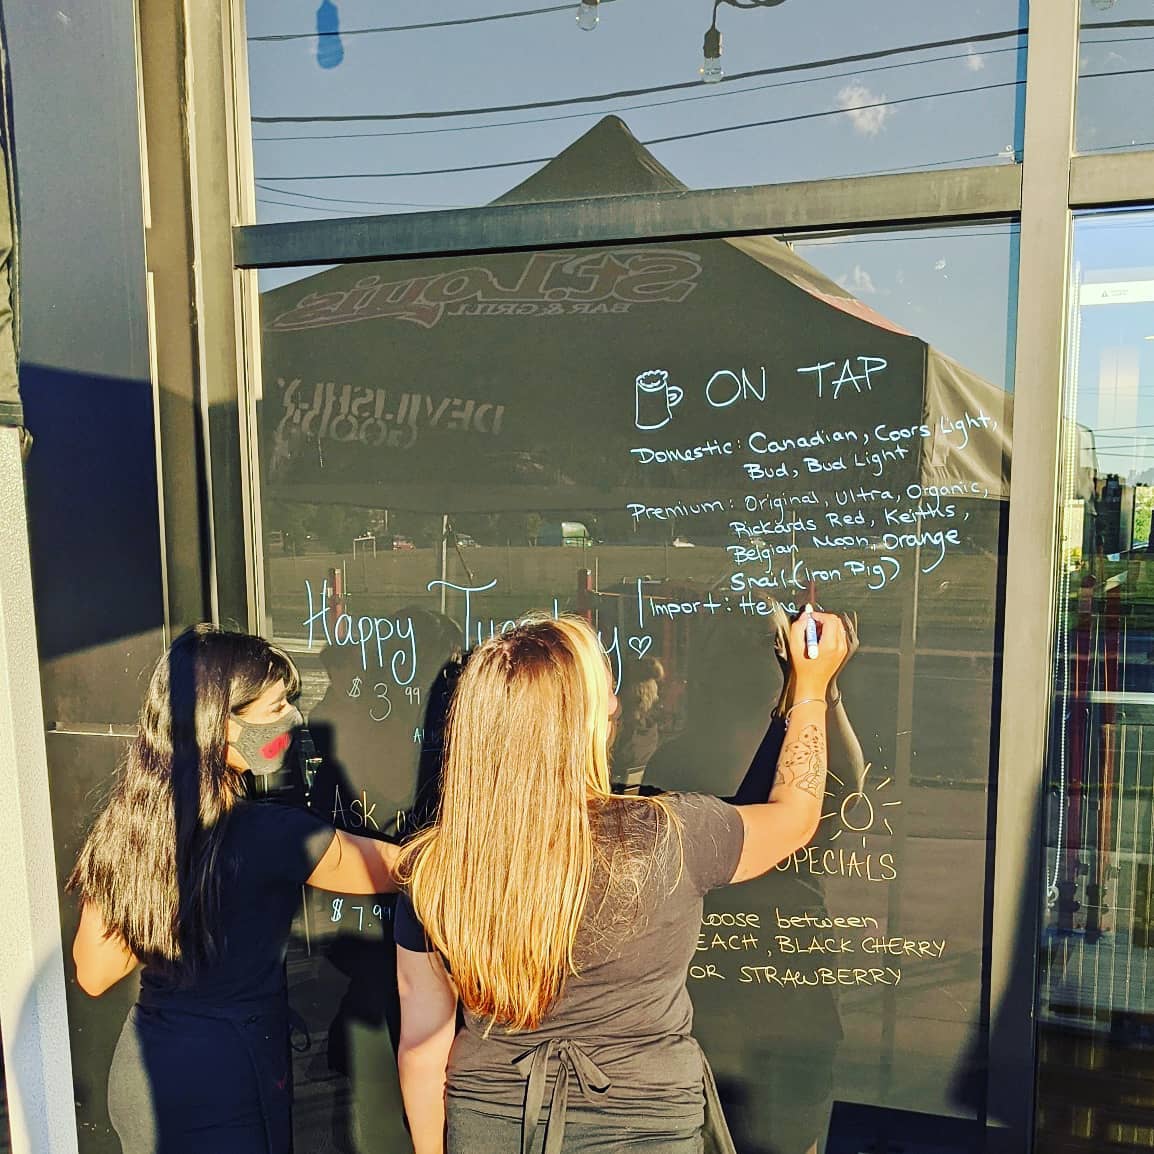 St. Louis
BAR & GRILL
DEVILISHLY
GOOD
ON TAP
Domestic: Canadian, Coors Light,
Bud, Bud Light
Premium: Original, Ultra, Organic,
Rickards Red, Keiths,
Belgian Moon, Orange
Snail (Iron Pig)
Import: Heine
Happy !
$3.99
Ask
$7.99
SPECIALS
between
BLACK CHERRY
OR STRAWBERRY